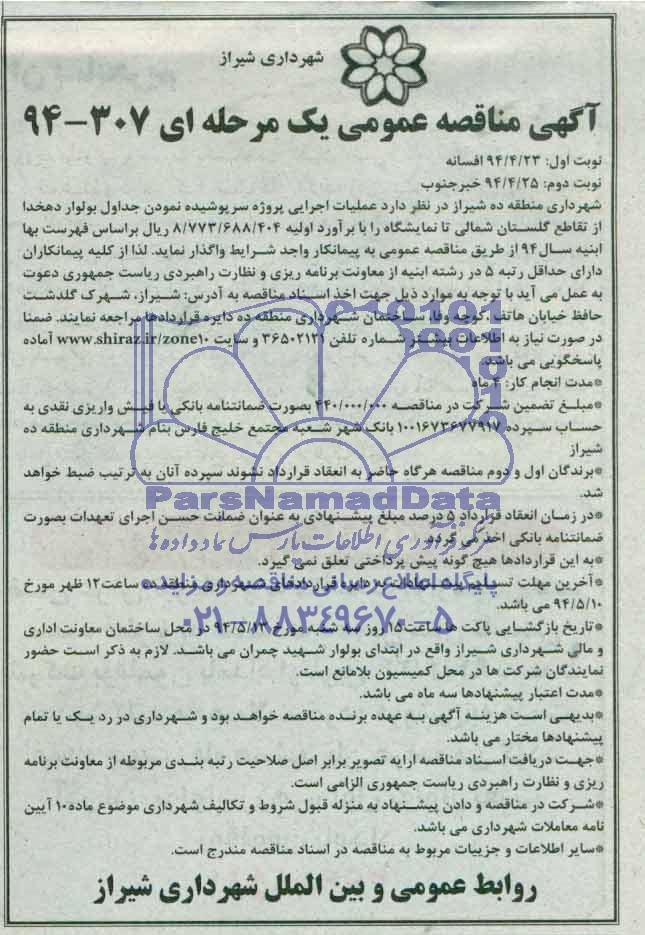 شهرداری شیراز
آگهی مناقصه عمومی یک مرحله ای ۳۰۷-۹۴
نوبت اول: ۹۴/۴/۲۳ افسانه
نوبت دوم: ۹۴/۴/۲۵ خبرجنوب
شهرداری منطقه ده شیراز در نظر دارد عملیات اجرایی پروژه سرپوشیده نمودن جداول بولوار دهخدا
از تقاطع گلستان شمالی تا نمایشگاه را با برآورد اولیه ۸/۷۷۳/۶۸۸/۴۰۴ ریال براساس فهرست بها
ابنیه سال ۹۴ از طریق مناقصه عمومی به پیمانکار واجد شرایط واگذار نماید. لذا از کلیه پیمانکاران
دارای حداقل رتبه ۵ در رشته ابنیه از معاونت برنامه ریزی و نظارت راهبردی ریاست جمهوری دعوت
به عمل می آید با توجه به موارد ذیل جهت اخذ اسناد مناقصه به آدرس: شیراز، شهرک گلدشت
حافظ خیابان هاتف، کوچه وفا، ساختمان شهرداری منطقه ده دایره قراردادها مراجعه نمایند. ضمنا
در صورت نیاز به اطلاعات بیشتر شماره تلفن ۳۶۵۰۲۱۲۱ و سایت www.shiraz.ir/zone۱۰ آماده
پاسخگویی می باشد.
*مدت انجام کار: ۴ ماه
*مبلغ تضمین شرکت در مناقصه ۴۴۰/۰۰۰/۰۰۰ بصورت ضمانتنامه بانکی یا فیش واریزی نقدی به
حساب سپرده ۱۰۰۱۶۷۳۶۷۷۹۱۷ بانک شهر شعبه مجتمع خلیج فارس بنام شهرداری منطقه ده
شیراز
*برندگان اول و دوم مناقصه هرگاه حاضر به انعقاد قرارداد نشوند سپرده آنان به ترتیب ضبط خواهد
شد.
ParsNamadData
*در زمان انعقاد قرارداد ۵ درصد مبلغ پیشنهادی به عنوان ضمانت حسن اجرای تعهدات بصورت
ضمانتنامه بانکی اخذ می گردد.
مرکز فرآوری اطلاعات پارس نماد داده ها
*به این قراردادها هیچ گونه پیش پرداختی تعلق نمی گیرد.
*آخرین مهلت تسلیم پیشنهادات به دایره قراردادهای شهرداری منطقه ده ساعت ۱۲ ظهر مورخ
پایگاه اطلاع رسانی مناقصه و مزایده
۹۴/۵/۱۰ می باشد.
۰۲۱-۸۸۳۴۹۶۷۰-۵
*تاریخ بازگشایی پاکت ها ساعت ۱۵ روز سه شنبه مورخ ۹۴/۵/۱۳ در محل ساختمان معاونت اداری
و مالی شهرداری شیراز واقع در ابتدای بولوار شهید چمران می باشد. لازم به ذکر است حضور
نمایندگان شرکت ها در محل کمیسیون بلامانع است.
*مدت اعتبار پیشنهادها سه ماه می باشد.
*بدیهی است هزینه آگهی به عهده برنده مناقصه خواهد بود و شهرداری در رد یک یا تمام
پیشنهادها مختار می باشد.
*جهت دریافت اسناد مناقصه ارایه تصویر برابر اصل صلاحیت رتبه بندی مربوطه از معاونت برنامه
ریزی و نظارت راهبردی ریاست جمهوری الزامی است.
*شرکت در مناقصه و دادن پیشنهاد به منزله قبول شروط و تکالیف شهرداری موضوع ماده ۱۰ آیین
نامه معاملات شهرداری می باشد.
*سایر اطلاعات و جزییات مربوط به مناقصه در اسناد مناقصه مندرج است.
روابط عمومی و بین الملل شهرداری شیراز